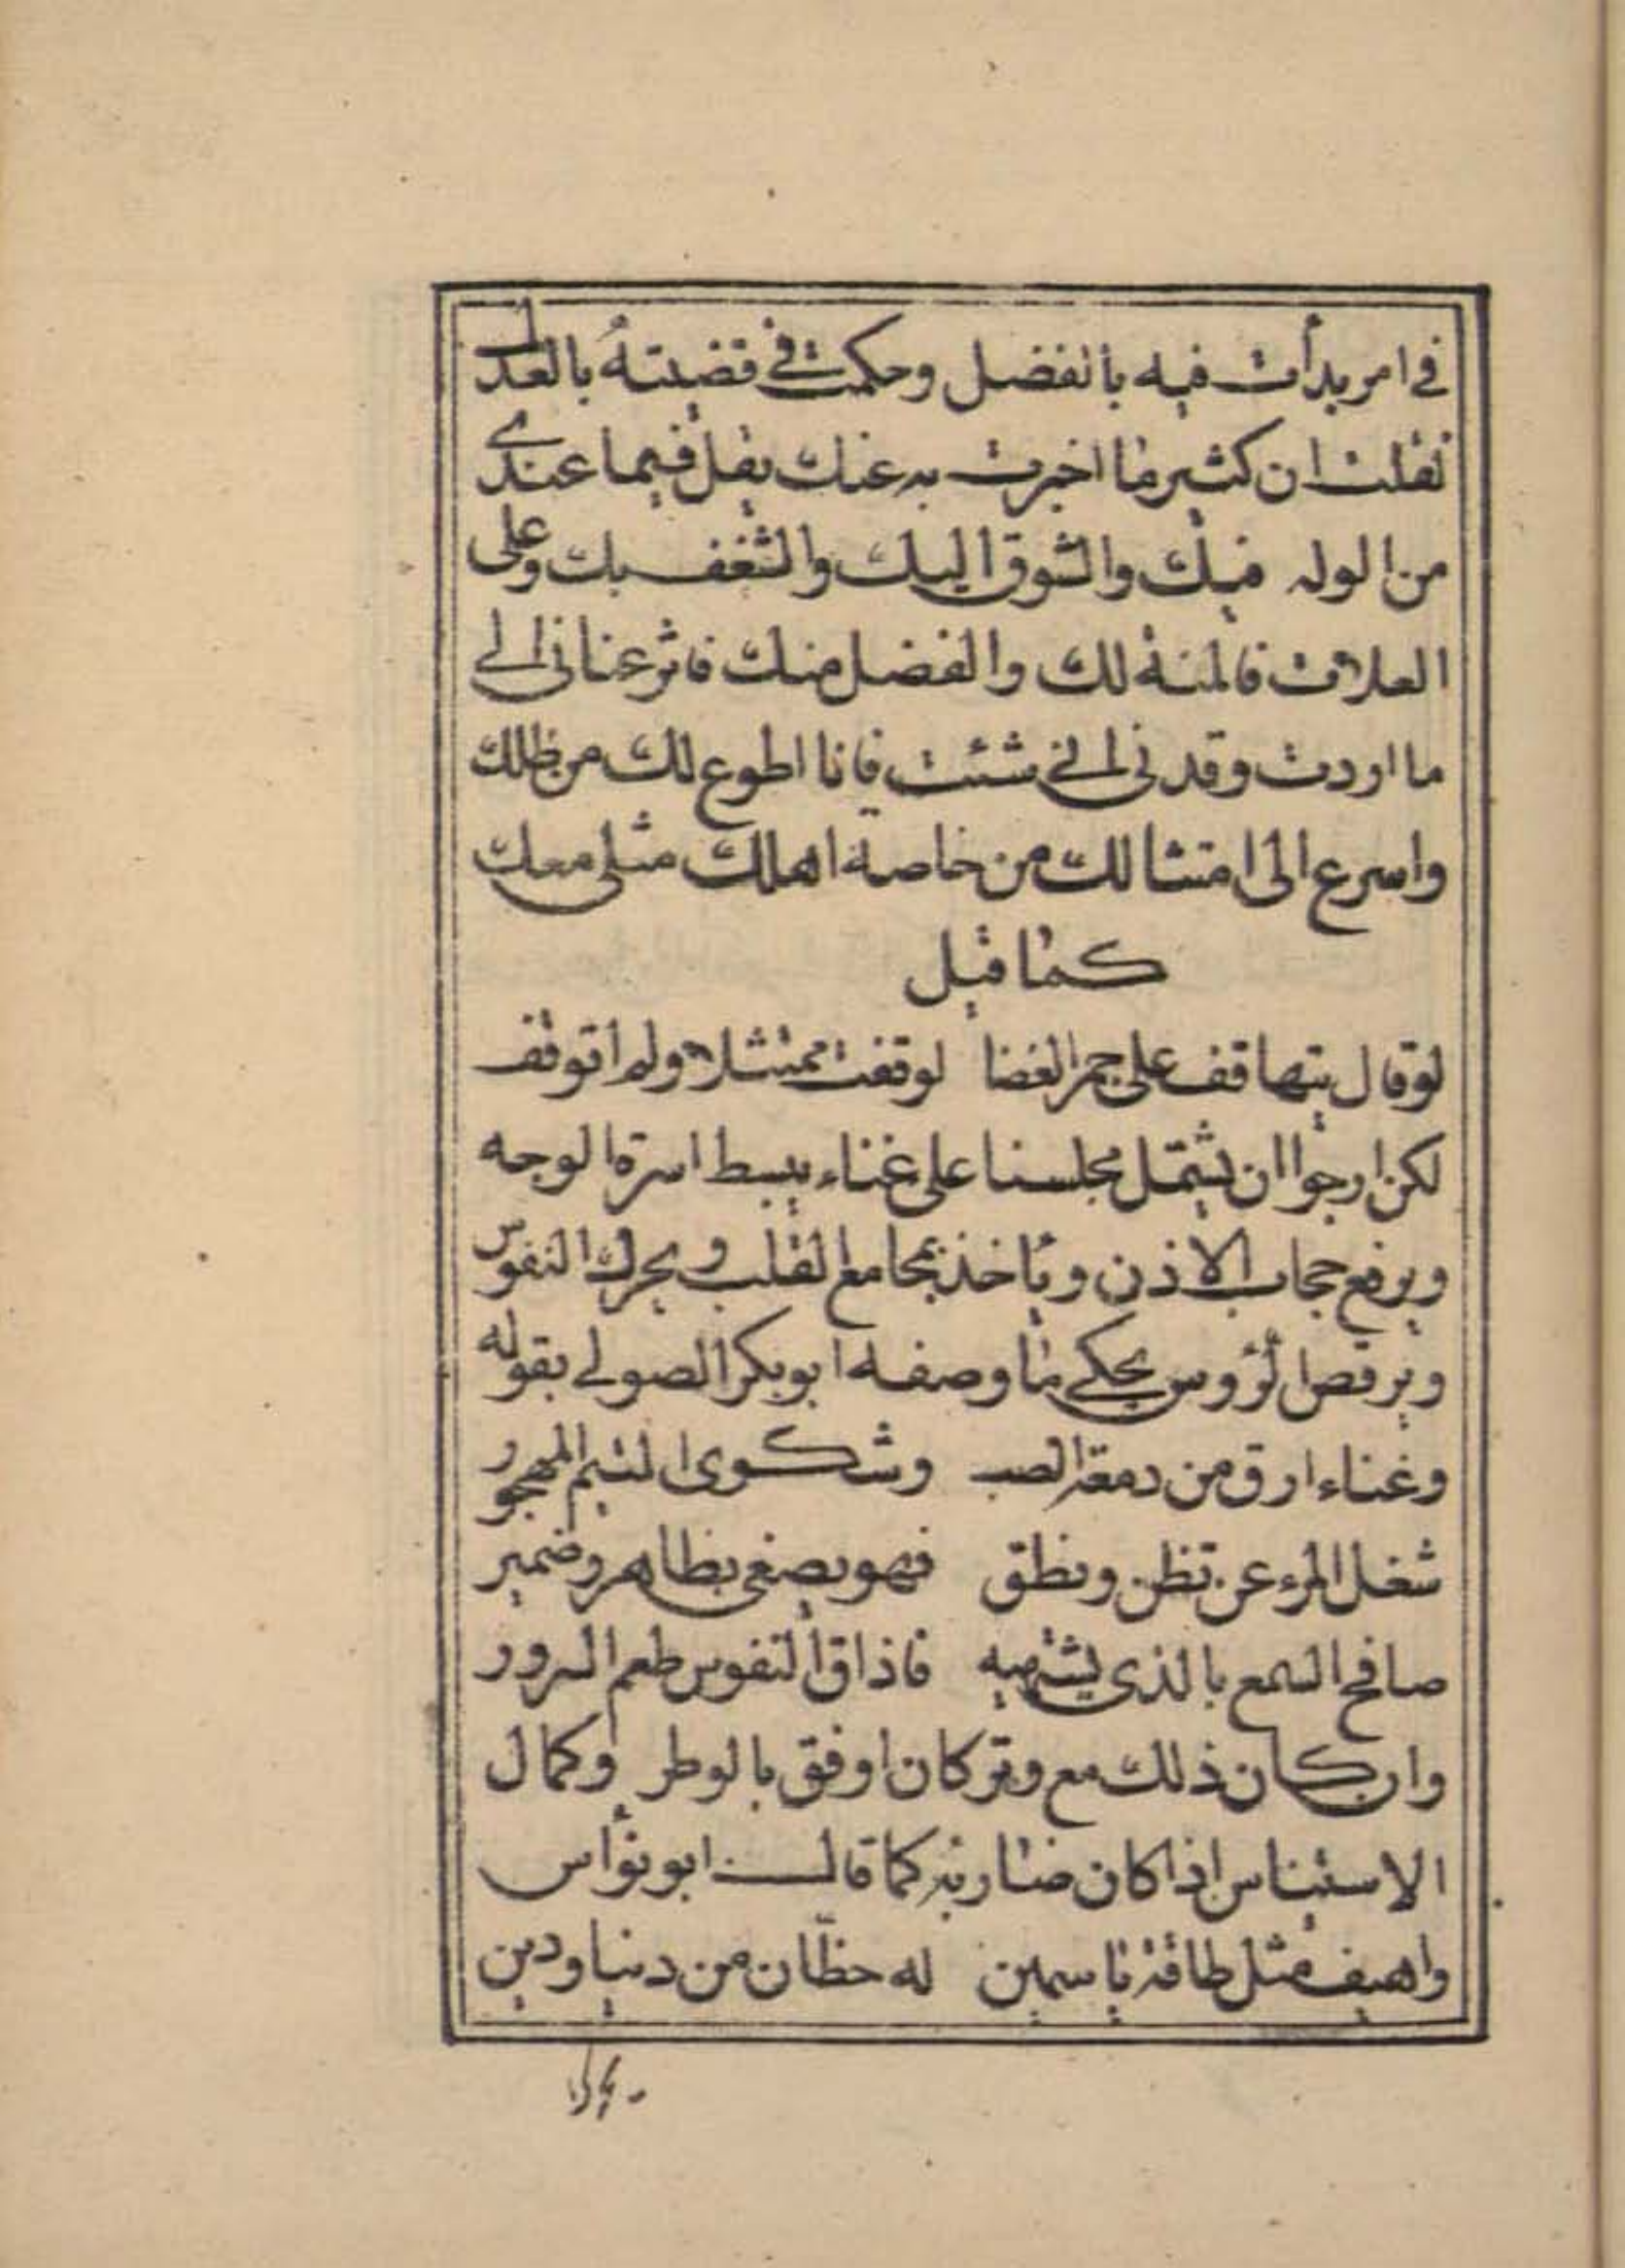 في امر بدأت فيه بالفضل وحكمت في قضيته بالعدل
فقلت ان كثير ما اخبرت به عنك يقل فيما عندي
من الوله فيك والشوق اليك والشغف بك وعلى
العلات فالمنة لك والفضل منك فاثر عناني الى
ما اردت وقدني الى شئت فانا اطوع لك من ظلك
واسرع الى امتثالك من خاصة اهلك مثلي معك
كما قيل
لو قال تيها قف على جمر الغضا لوقفت ممتثلا ولم اتوقف
لكن ارجوا ان يشتمل مجلسنا على غناء يبسط اسرة الوجه
ويرفع حجاب الاذن وياخذ بمجامع القلب ويحرك النفوس
ويرقص الرؤوس يحكي ما وصفه ابو بكر الصولي بقوله
وغناء ارق من دمعة الصب وشكوى المتيم المهجور
شغل المرء عن تظن ونطق فهو يصغي بظاهر وضمير
صافح السمع بالذي يشتهيه فاذاق النفوس طعم السرور
وان كان ذلك مع وتر كان اوفق بالوطر وكمال
الاستيناس اذا كان ضاربه كما قال ابو نؤاس
واهيف مثل طاقة ياسمين له حظان من دنيا ودين